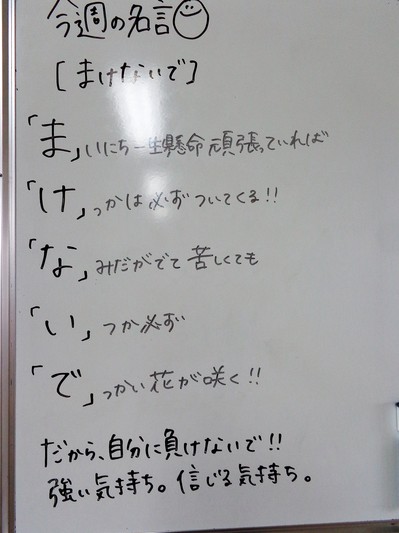 今週の名言
[まけないで]
「ま」いにち一生懸命頑張っていれば
「け」っかは必ずついてくる!!
「な」みだがでて苦しくても
「い」つか必ず
「で」っかい花が咲く!!
だから、自分に負けないで!!
強い気持ち。信じる気持ち。